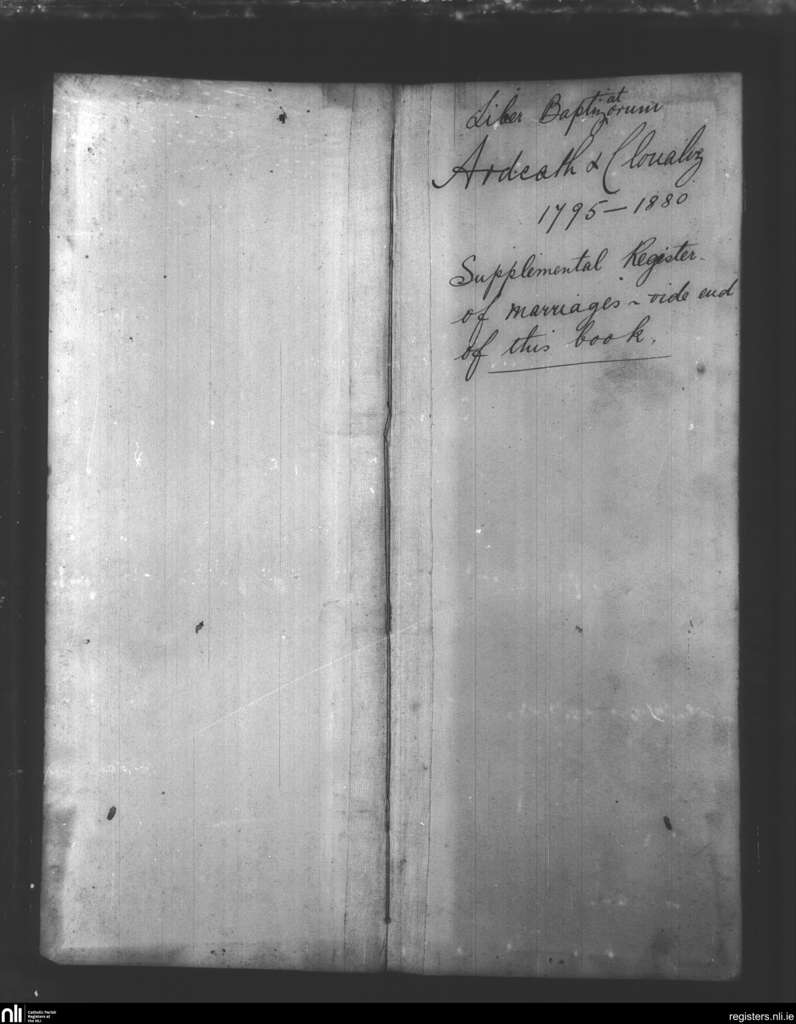 Liber Baptizatorum
Ardcath & Clonalvy
1795–1880
Supplemental Register
of marriages ~ vide end
of this book.
nli Catholic Parish
Registers at
the NLI
registers.nli.ie